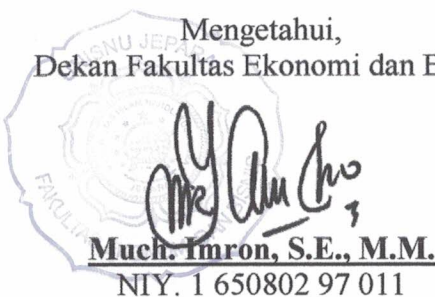 UNISNU JEPARA
Mengetahui,
Dekan Fakultas Ekonomi dan B
Much. Imron, S.E., M.M.
NIY. 1 650802 97 011